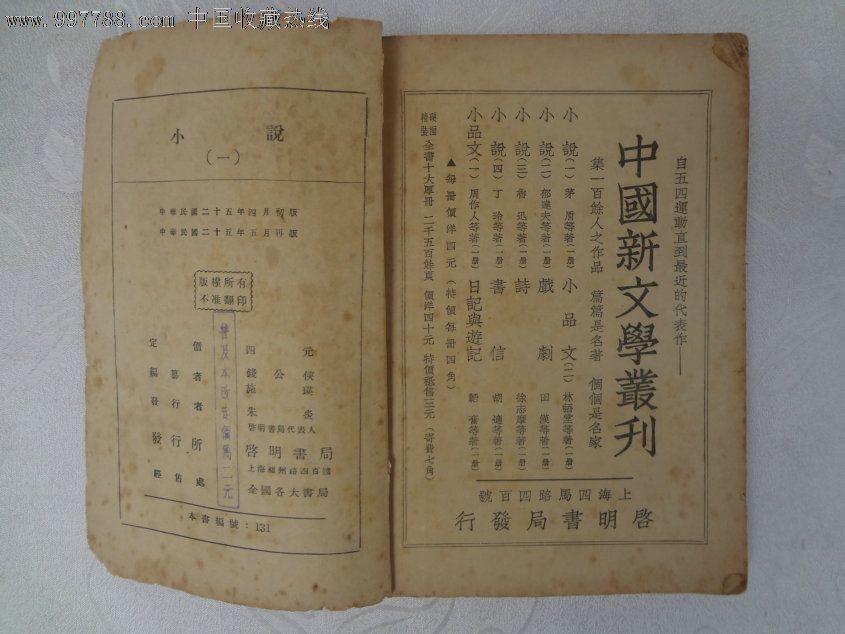 www.997788.com 中国收藏热线
小說
（一）
中華民國二十五年四月初版
中華民國二十五年五月再版
版權所有
不准翻印
定價 四元
編纂者 錢公俠
施瑛
發行者 朱炎
啓明書局代表人
發行所 啓明書局
上海福州路四百號
經售處 全國各大書局
本書編號：131
普及本所售價萬二元
自五四運動直到最近的代表作——
中國新文學叢刊
集一百餘人之作品 篇篇是名著 個個是名家
小說（一）茅盾等著（一册）
小說（二）郁達夫等著（一册）
小說（三）魯迅等著（一册）
小說（四）丁玲等著（一册）
小品文（一）周作人等著（一册）
小品文（二）林語堂等著（一册）
戲劇 田漢等著（一册）
詩 徐志摩等著（一册）
書信 胡適等著（一册）
日記與遊記 等著（一册）
▲每册價洋四元（特價每册四角）
硬面精裝 全書十大厚册 二千五百餘頁 價洋四十元 特價祗售三元（寄費七角）
上海四馬路四百號
啓明書局發行